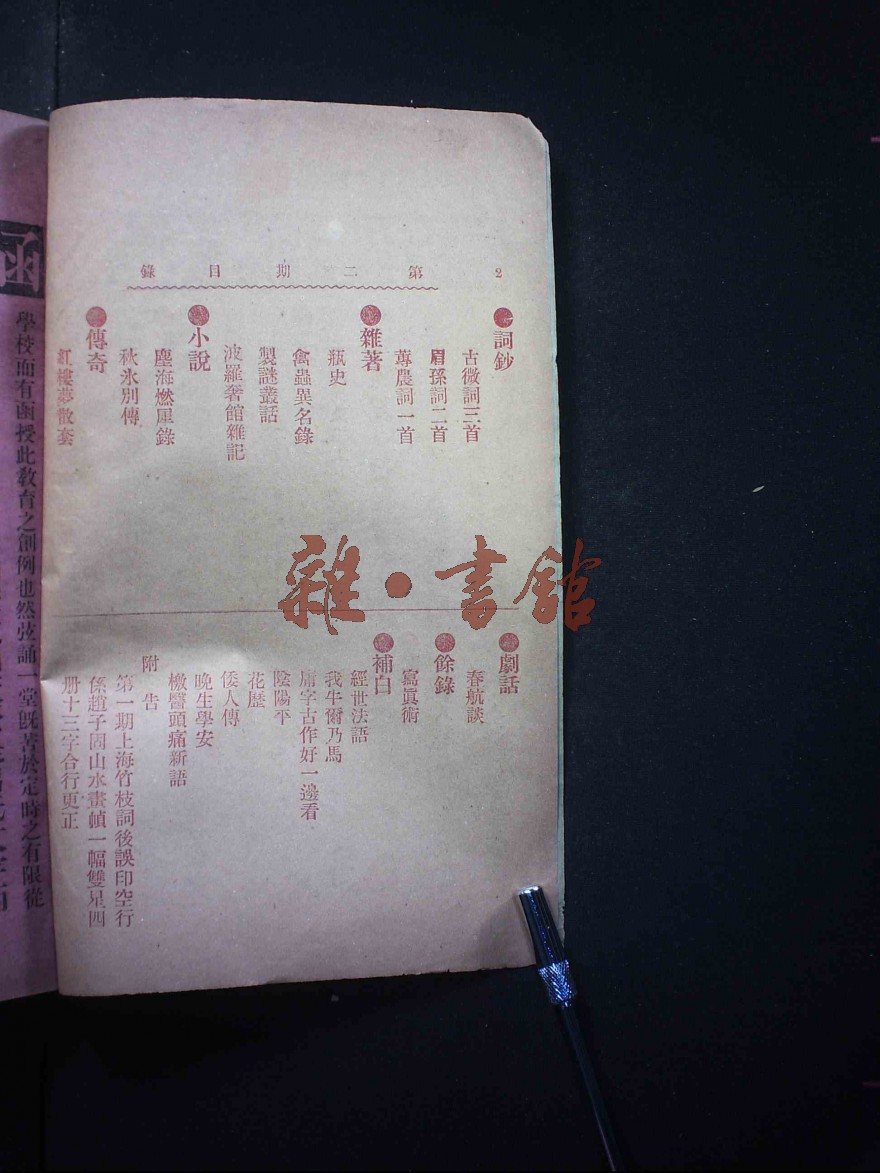 2 第二期目錄
詞鈔
古微詞三首
眉孫詞二首
蓴農詞一首
雜著
瓶史
禽蟲異名錄
製謎叢話
波羅奢館雜記
小說
塵海燃犀錄
秋氷別傳
傳奇
紅樓夢散套
劇話
春航談
餘錄
寫眞術
補白
經世法語
我牛爾乃馬
唐字古作好一邊看
陰陽平
花歷
倭人傳
晚生學安
檄醫頭痛新語
附告
第一期上海竹枝詞後誤印空行
係趙子固山水畫幀一幅雙星四
册十三字合行更正
函
學校而有函授此敎育之創例也然弦誦一堂旣苦於定時之有限從
雜·書館